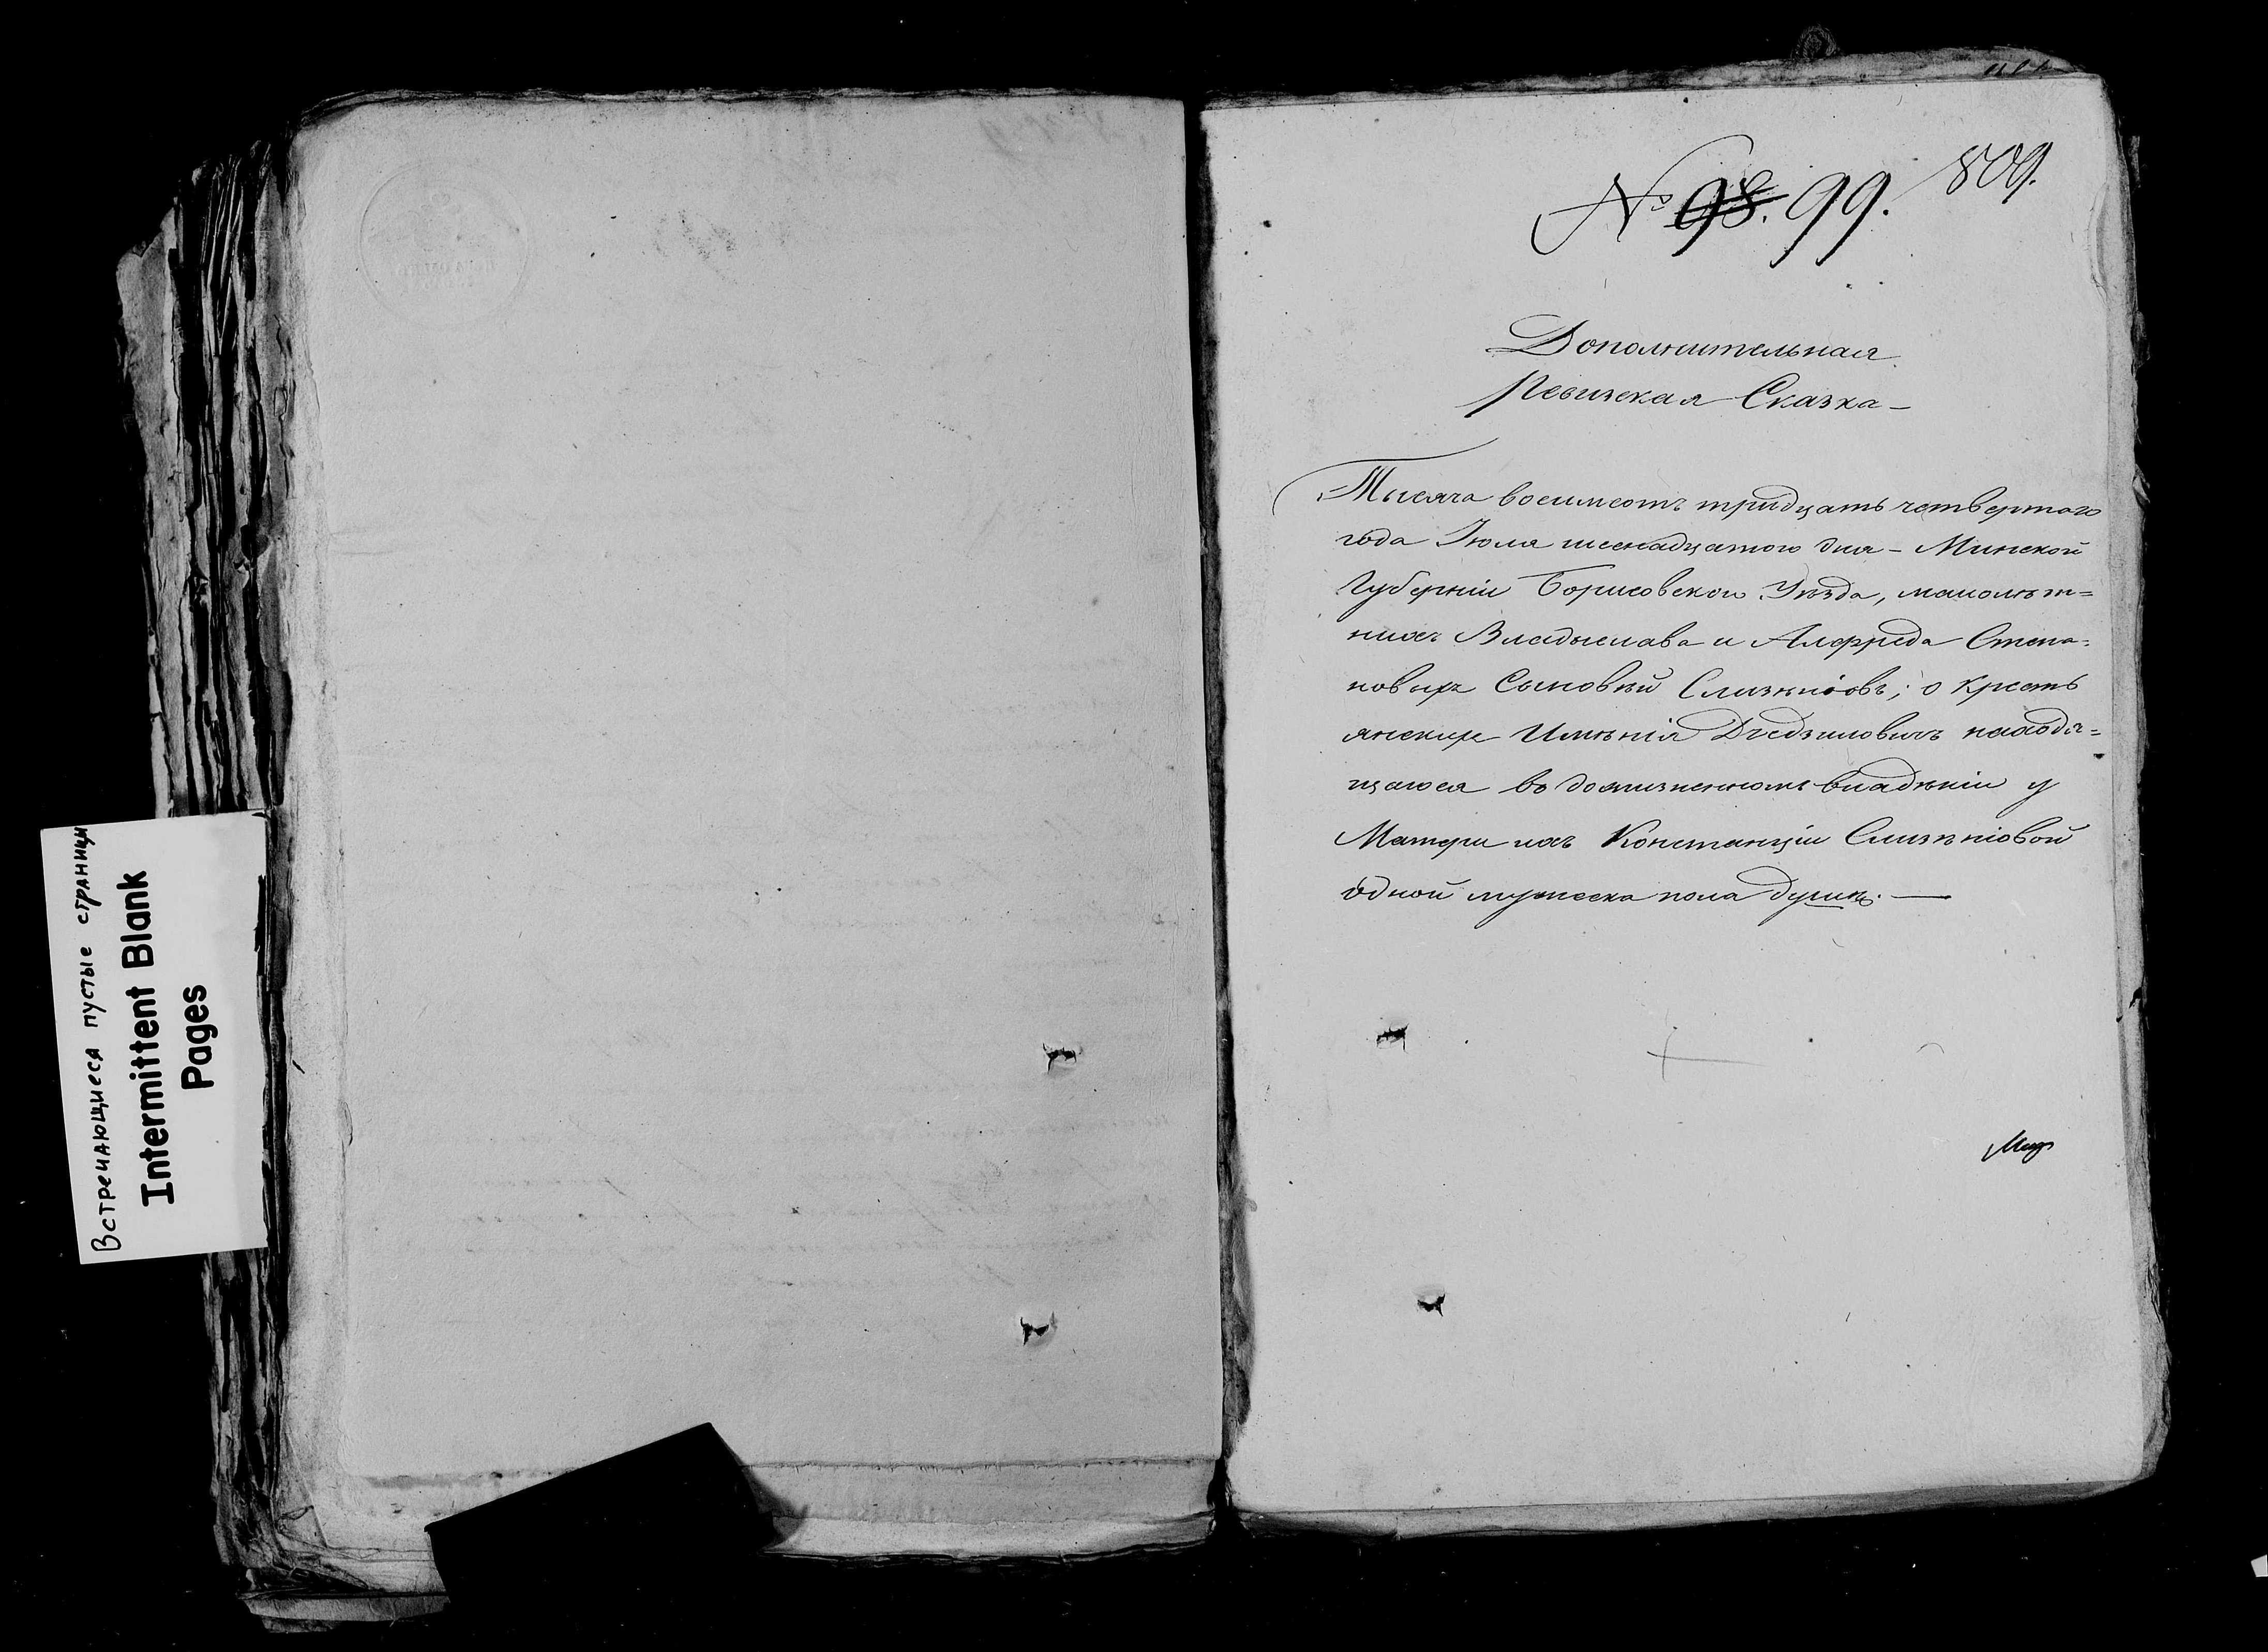 Встречающиеся пустые страницы
Intermittent Blank
Pages
№ 98. 99.
809.
Дополнительная
Ревизская Сказка —
Тысяча восимсотъ тридцать четвертаго
года Іюля шеснадцатого дня — Минской
Губерніи Борисовскои Уѣзда, малолѣт=
нихъ Владыслава и Алфреда Степа=
новыхъ Сыновѣй Слизнѣовъ; о Кресть
янскихъ Имѣнія Дзедзиловичъ находя=
щагося во дожизненномъ владѣніи у
Матери ихъ Констанціи Слизнѣовой
одной мужеска пола душѣ. —